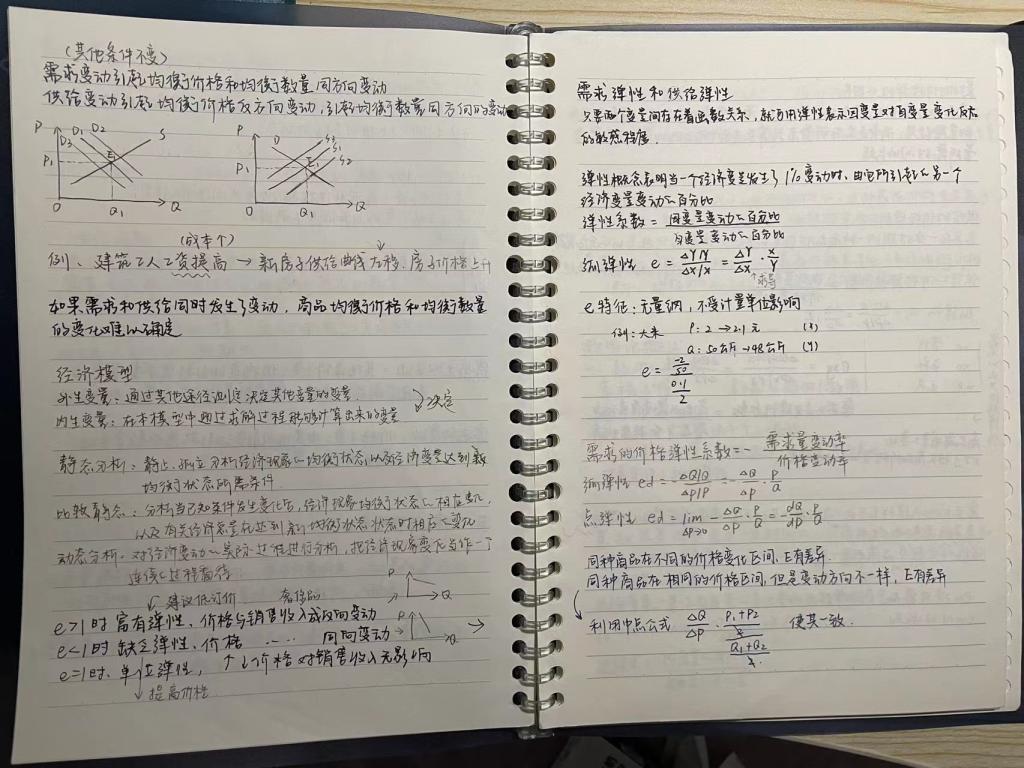 (其他条件不变)
需求变动引起均衡价格和均衡数量同方向变动
供给变动引起均衡价格反方向变动,引起均衡数量同方向的变动
P D1 D2 S
D3
P1 E1
O Q1 Q
P D S3
S1
S2
P1 E1
O Q1 Q
(成本个)
例、建筑工人工资提高 → 新房子供给曲线左移,房子价格上升
如果需求和供给同时发生了变动,商品均衡价格和均衡数量
的变化难以确定
经济模型
外生变量:通过其他途径决定其他变量的变量
内生变量:在本模型中通过求解过程能够计算出来的变量
决定
静态分析:静止、孤立分析经济现象的均衡状态,以及经济变量达到
均衡状态所需条件
比较静态:分析当已知条件发生变化后,经济现象均衡状态的相应变化,
以及有关经济总量在达到新的均衡状态状态时相应的变化
动态分析:对经济变动的实际过程进行分析,把经济现象变化当作一个
连续的过程看待.
建议低订价 奢侈品
P Q
e>1时富有弹性、价格与销售收入成反向变动
e<1时缺乏弹性、价格 …… 同向变动
P Q
e=1时、单位弹性, ↑↓价格对销售收入无影响
提高价格
需求弹性和供给弹性
只要两个变量间存在着函数关系,就可用弹性表示因变量对自变量变化反应
的敏感程度.
弹性概念表明当一个经济变量发生了1%变动时,由它所引起的另一个
经济变量变动的百分比
弹性系数 = 因变量变动的百分比 / 自变量变动的百分比
弧弹性 e = (ΔY/Y)/(ΔX/X) = ΔY/ΔX · X/Y
求导
e特征:无量纲,不受计量单位影响
例:大米 P:2→2.1元 (X)
Q:50公斤→48公斤 (Y)
e = (-2/50)/(0.1/2)
需求的价格弹性系数 = - 需求量变动率 / 价格变动率
弧弹性 ed = - (ΔQ/Q)/(ΔP/P) = - ΔQ/ΔP · P/Q
点弹性 ed = lim ΔP→0 - ΔQ/ΔP · P/Q = - dQ/dP · P/Q
同种商品在不同的价格变化区间,E有差异.
同种商品在相同的价格区间,但是变动方向不一样,E有差异
利用中点公式 ΔQ/ΔP · ((P1+P2)/2)/((Q1+Q2)/2) 使其一致.